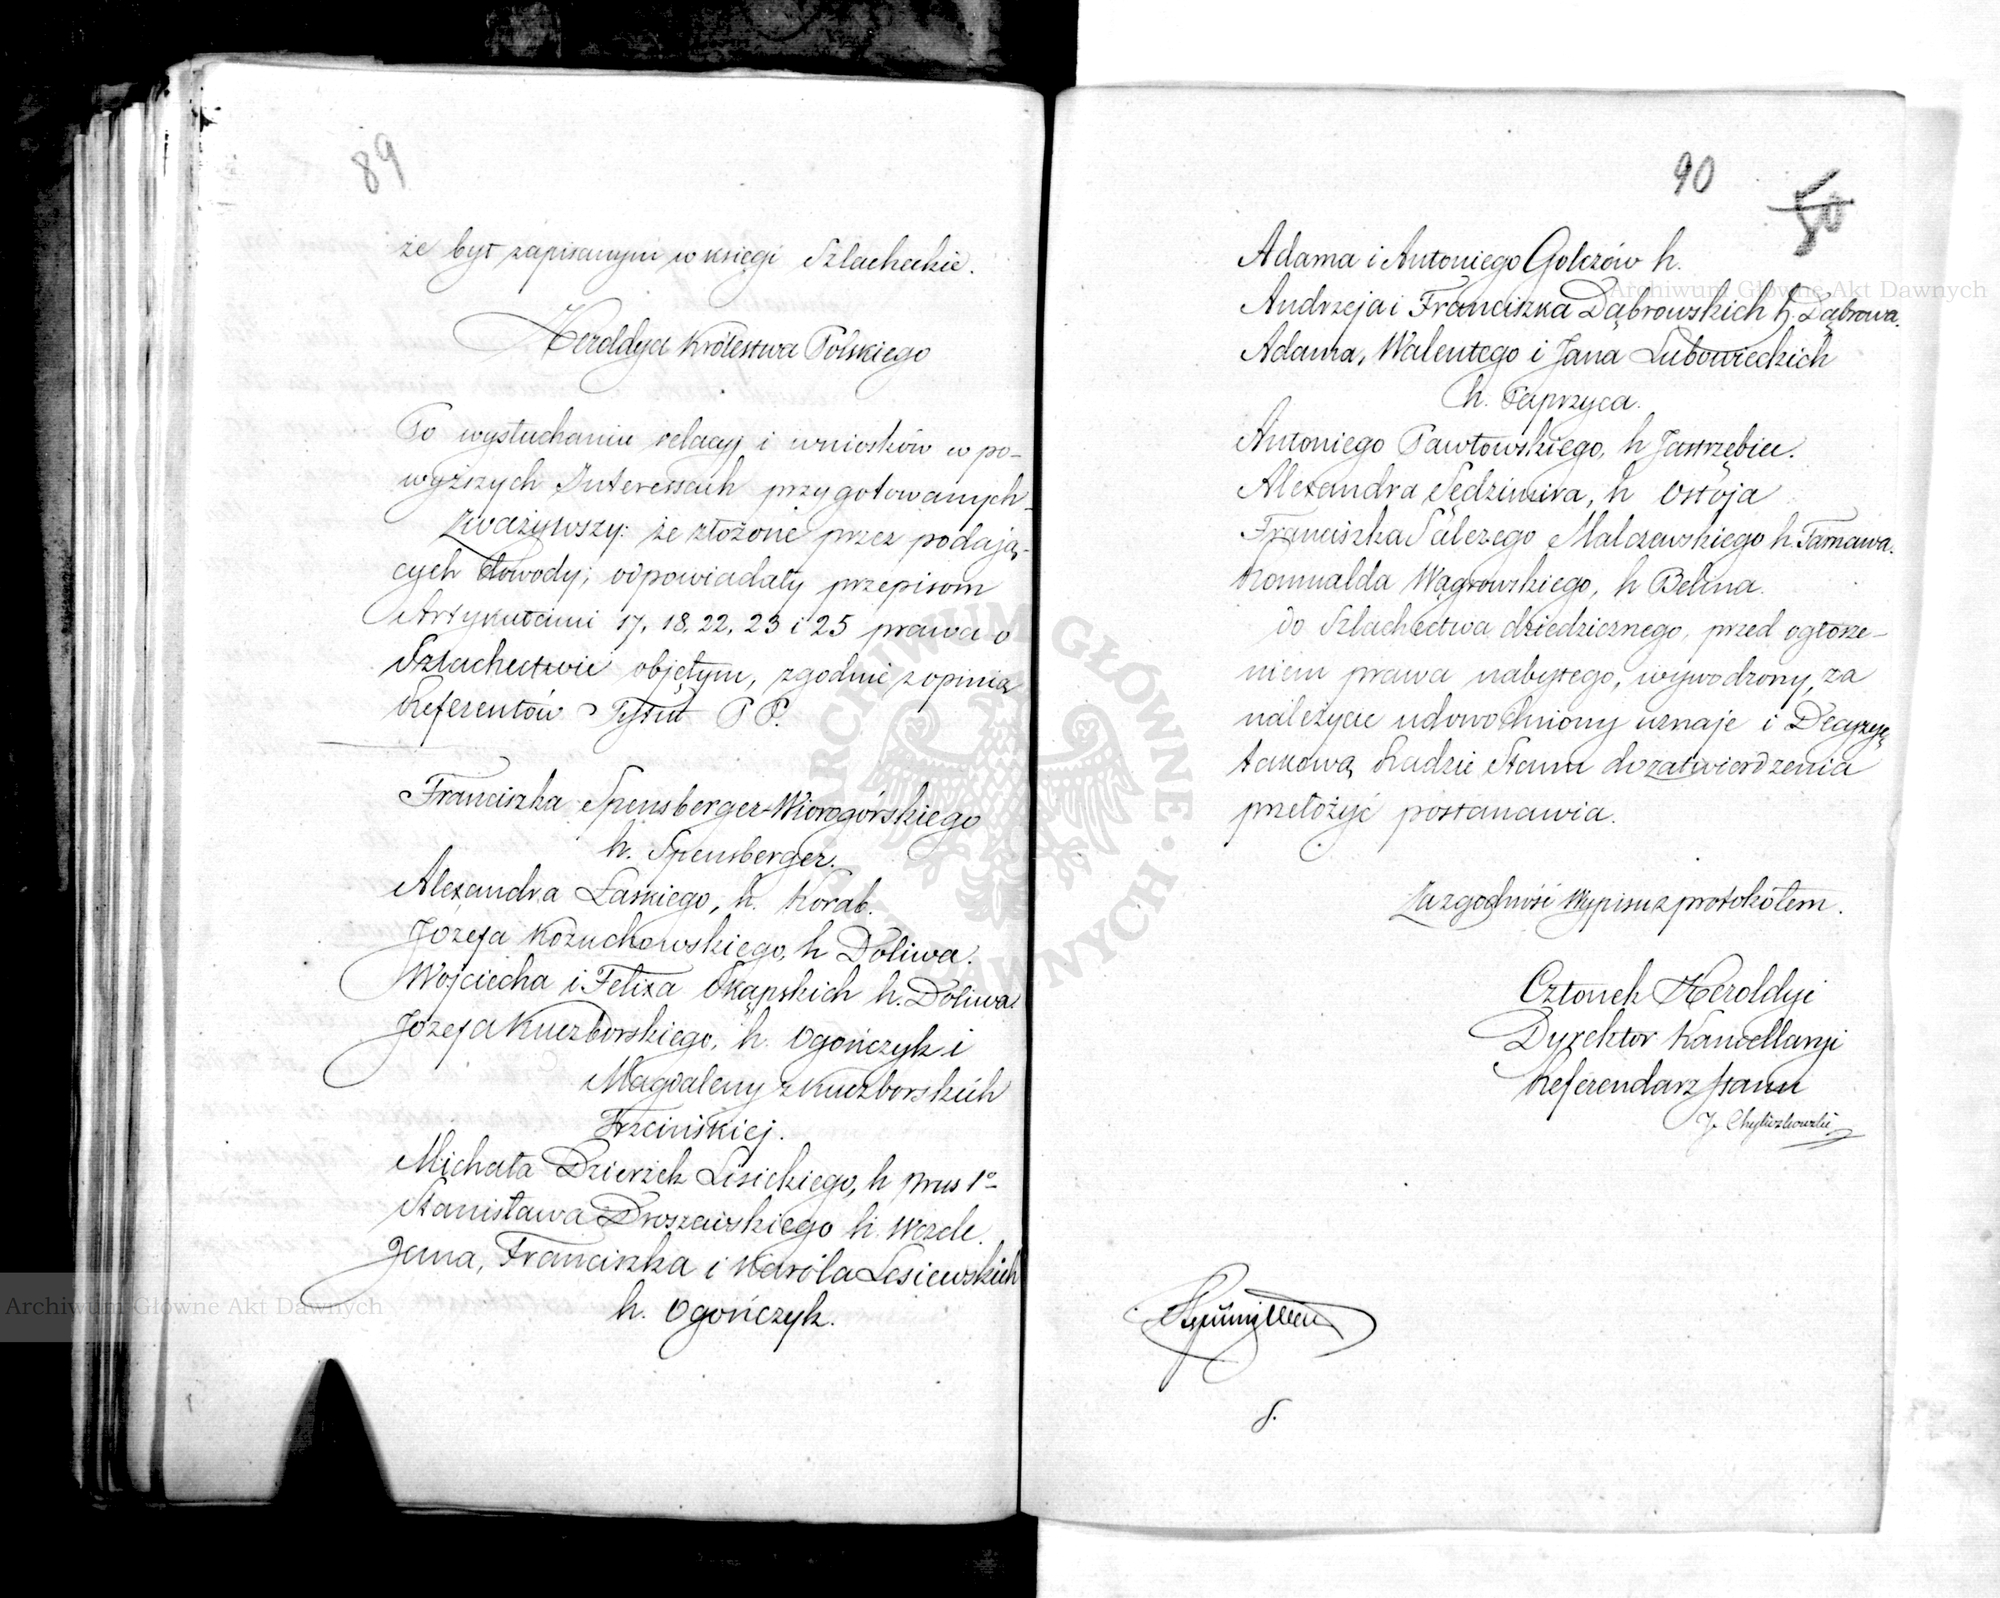 89
że być zapisanym w księgi Szlacheckie.
Heroldya Królestwa Polskiego
Po wysłuchaniu relacyj i wniosków w po-
wyższych Interessach przygotowanych
Zważywszy: że złożone przez podają-
cych dowody; odpowiadały przepisom
Artykułami 17, 18, 22, 23 i 25 prawa o
Szlachectwie objętym, zgodnie z opinią
Referentów Tytuł P P.
Franciszka Spensberger-Wiorogórskiego
h. Spensberger.
Alexandra Łaskiego, h. Korab.
Józefa Kożuchowskiego, h Doliwa.
Wojciecha i Felixa Skąpskich h. Doliwa.
Józefa Kuczborskiego, h. Ogończyk i
Magdaleny z Kuczborskich
Trzcińskiej.
Michała Dzierżek Lisickiego, h prus 1o
Stanisława Droszewskiego h.
Jana, Franciszka i Karola Lesiewskich
h. Ogończyk.
90
50
Adama i Antoniego Golczów h.
Andrzeja i Franciszka Dąbrowskich h. Dąbrowa.
Adama, Walentego i Jana Lubowieckich
h. Paprzyca.
Antoniego Pawłowskiego, h Jastrzębiec.
Alexandra Sędzimira, h Ostoja
Franciszka Salezego Malczewskiego h. Tarnawa.
Romualda Wągrowskiego, h Belina.
do Szlachectwa dziedzicznego, przed ogłosze-
niem prawa nabytego, wywodzony, za
należycie udowodniony uznaje i Decyzyę
takową Radzie Stanu do zatwierdzenia
przełożyć postanawia.
Za zgodność Wypisu z protokółem.
Członek Heroldyi
Dyrektor Kancellaryi
Referendarz Stanu
J.
8.
Archiwum Główne Akt Dawnych
Archiwum Główne Akt Dawnych
ARCHIWUM GŁÓWNE AKT DAWNYCH